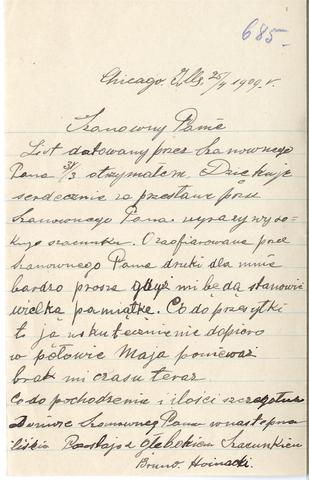 685-
Chicago. Ills. 25/4 1909. r.
Szanowny Panie
List datowany przez Szanownego
Pana 31/3 otrzymałem. Dziękuję
serdecznie za przesłane przez
Szanownego Pana wyrazy wyso-
kiego szacunku. O zaofiarowane przez
Szanownego Pana druki dla mnie
bardzo proszę gdyż mi będą stanowić
wielką pamiątkę. Co do przesyłki
to ja uskutecznię dopiero
w połowie Maja ponieważ
brak mi czasu teraz
Co do pochodzenia i ilości szczegółów
Doniosę Szanownego Pana w następnem
liście Pozostaję z głębokiem Szacunkiem
Bruno. Hoinacki.